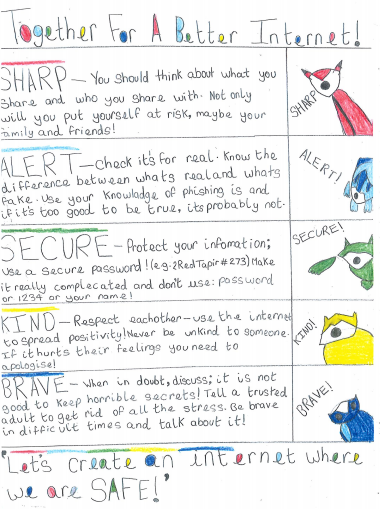 Together For A Better Internet!
SHARP — You should think about what you
share and who you share with. Not only
will you put yourself at risk, maybe your
family and friends!
SHARP
ALERT — Check it's for real. Know the
difference between whats real and whats
fake. Use your knowladge of phishing is and
if it's too good to be true, its probably not.
ALERT!
SECURE — Protect your infomation;
Use a secure password! (e.g-2RedTapir#273) Make
it really complecated and don't use: password
or 1234 or your name!
SECURE!
KIND — Respect eachother – use the internet
to spread positivity! Never be unkind to someone.
If it hurts their feelings you need to
apologise!
KIND!
BRAVE — When in doubt, discuss; it is not
good to keep horrible secrets! Tell a trusted
adult to get rid of all the stress. Be brave
in difficult times and talk about it!
BRAVE!
'Let's create an internet where
we are SAFE!'